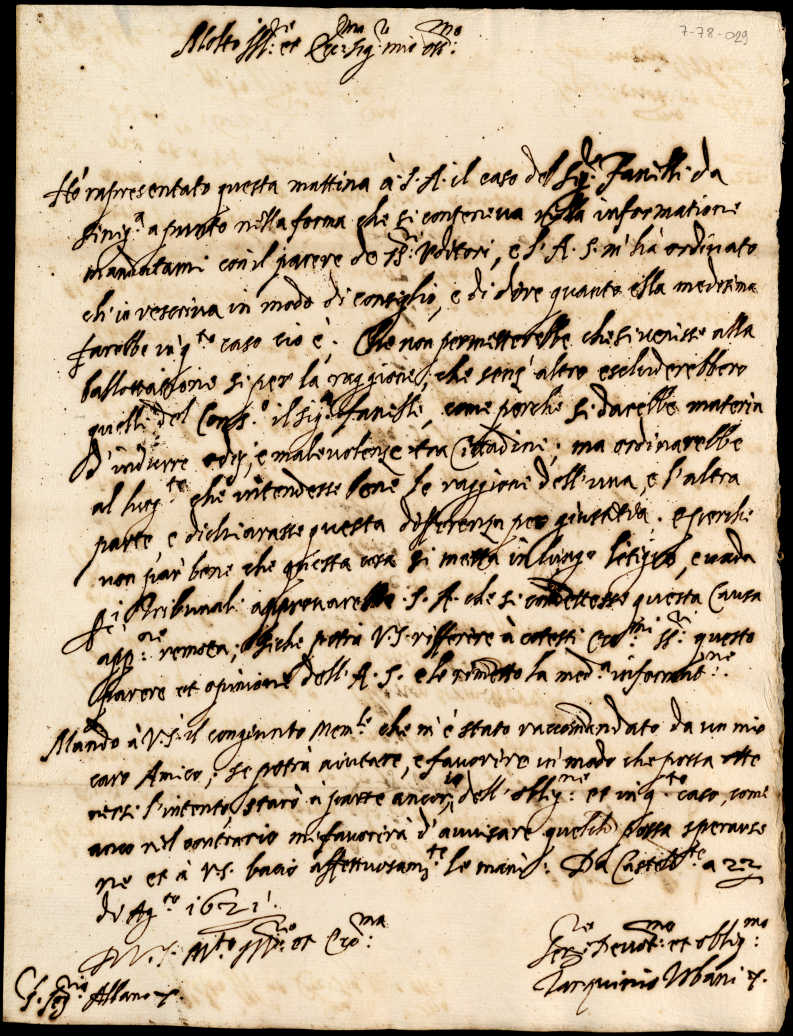 7-78-029
Molto Ill.re et Ecc.ma Sig.r mio oss.mo
Hò rapresentato questa mattina à S. A. il caso del Sig.r Fanelli da
Sinig.a apunto nella forma che si conteneva nella informatione
mandatami con il parere de SS.ri Uditori, e S. A. S. m'hà ordinato
ch'io rescriva in modo di consiglio, e di dire quanto ella medesima
farebbe in q.to caso cio è; Che non permetterebbe che si venisse alla
ballottatione si per la raggione, che senz'altro escluderebbero
quelli del Cons.o il sig.r Fanelli, come perche si darebbe materia
d'indurre odij, e malevolenze tra Cittadini; ma ordinarebbe
al luog.te che intendesse bene le raggioni dell'una, e l'altra
parte e dichiarasse questa differenza per giustitia. e perche
non par bene che questa cosa si metta in lungo litigio, e vada
p i Tribunali approvarebbe S. A. che si commettesse questa Causa
app.ne remota; Siche potrà V.S. rifferire à cotesti SS.ri questo
parere et opinione dell'A. S. e le rimetto la med.a informat.ne.
Mando à V.S. il congiunto Mem.le che m'è stato raccomandato da un mio
caro Amico; se potrà aiutare, e favorire in modo che possa otte
nersi l'intento, starò à parte ancor io dell'oblig.ne et in q.to caso, come
anco nel contrario mi favorirà d'avvisare quello possa sperarse
ne et à V.S. bacio affettuosam.te le mani. Da Castell.te a 22
di Ag.to 1621.
D. V. S. M.to Ill.re et Ecc.ma
Ser.re Devot.mo et oblig.mo
Tarquinio Urbani
Albano